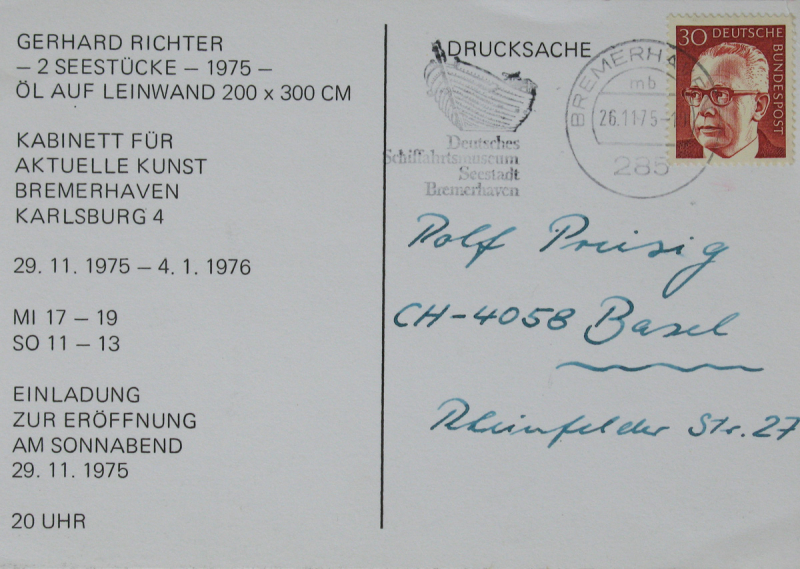 GERHARD RICHTER
– 2 SEESTÜCKE – 1975 –
ÖL AUF LEINWAND 200 x 300 CM
KABINETT FÜR
AKTUELLE KUNST
BREMERHAVEN
KARLSBURG 4
29. 11. 1975 – 4. 1. 1976
MI 17 – 19
SO 11 – 13
EINLADUNG
ZUR ERÖFFNUNG
AM SONNABEND
29. 11. 1975
20 UHR
DRUCKSACHE
Deutsches
Schiffahrtsmuseum
Seestadt
Bremerhaven
BREMERHA
mb
26.11.75-
285
30 DEUTSCHE
BUNDESPOST
Rolf Preisig
CH-4058 Basel
Rheinfelder Str. 27